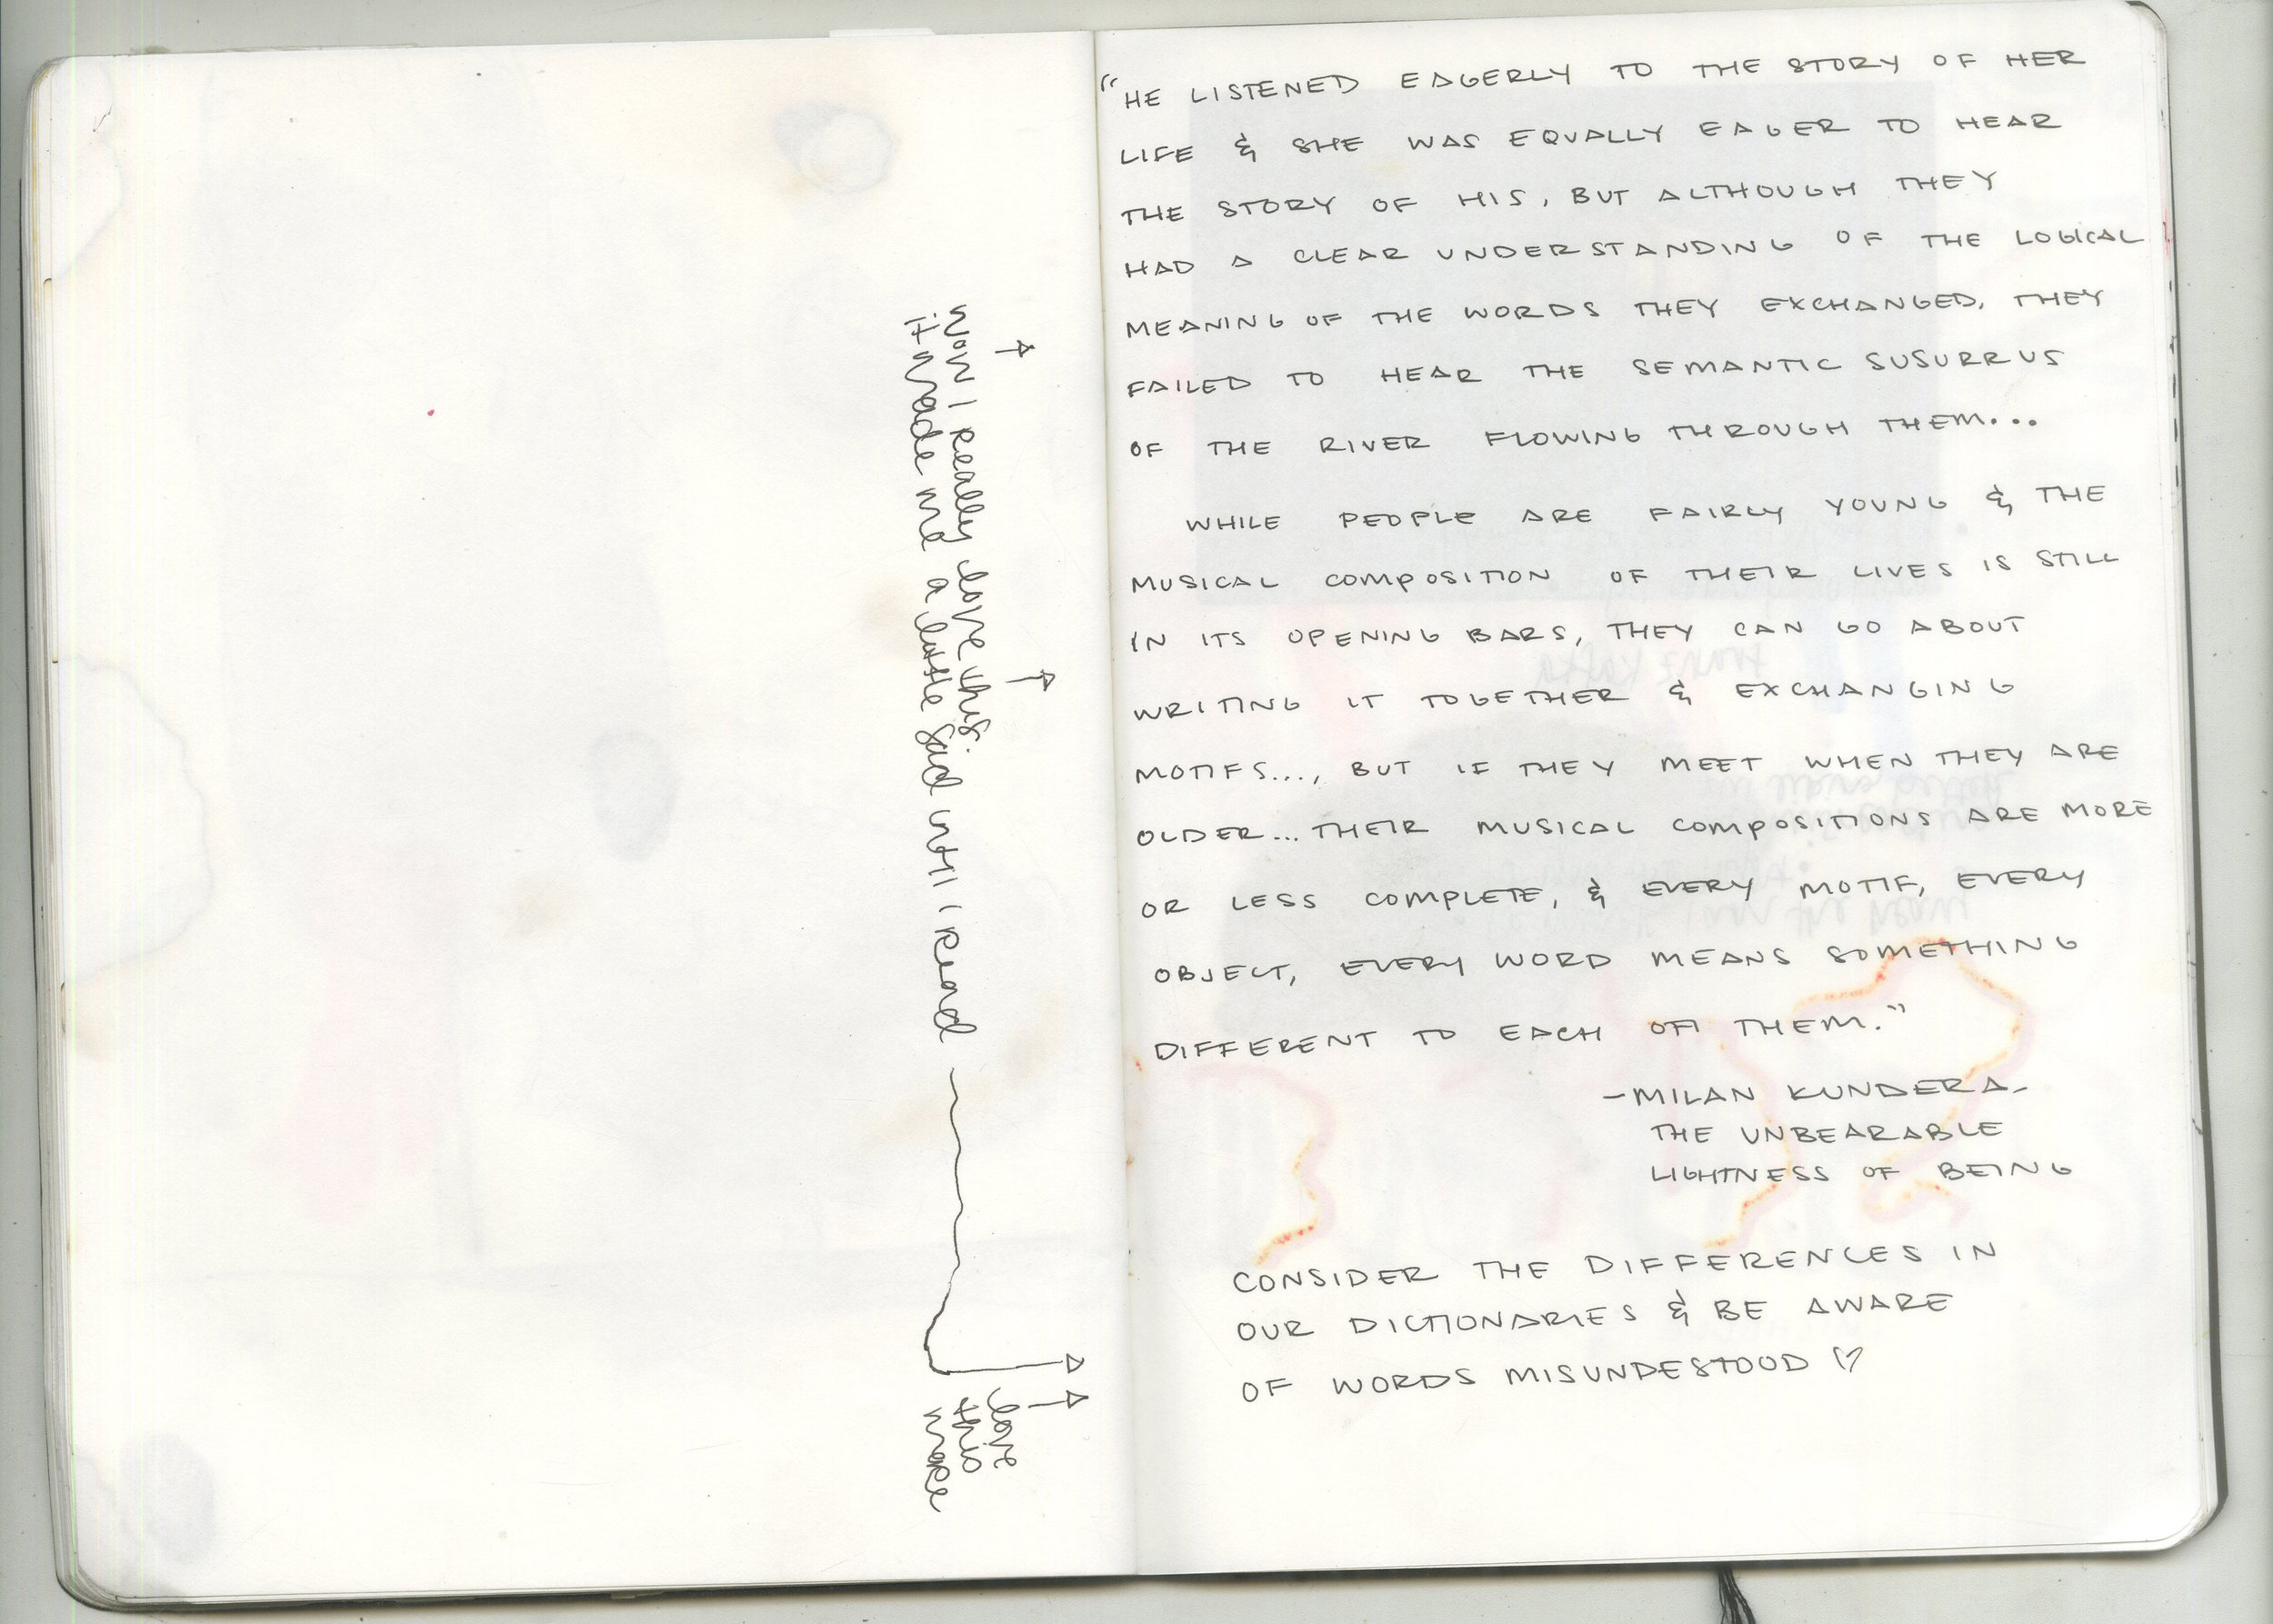 wow I really love this.
it made me a little sad until I read
love
this
more
"HE LISTENED EAGERLY TO THE STORY OF HER
LIFE & SHE WAS EQUALLY EAGER TO HEAR
THE STORY OF HIS, BUT ALTHOUGH THEY
HAD A CLEAR UNDERSTANDING OF THE LOGICAL
MEANING OF THE WORDS THEY EXCHANGED, THEY
FAILED TO HEAR THE SEMANTIC SUSURRUS
OF THE RIVER FLOWING THROUGH THEM...
WHILE PEOPLE ARE FAIRLY YOUNG & THE
MUSICAL COMPOSITION OF THEIR LIVES IS STILL
IN ITS OPENING BARS, THEY CAN GO ABOUT
WRITING IT TOGETHER & EXCHANGING
MOTIFS..., BUT IF THEY MEET WHEN THEY ARE
OLDER... THEIR MUSICAL COMPOSITIONS ARE MORE
OR LESS COMPLETE, & EVERY MOTIF, EVERY
OBJECT, EVERY WORD MEANS SOMETHING
DIFFERENT TO EACH OF THEM."
-MILAN KUNDERA-
THE UNBEARABLE
LIGHTNESS OF BEING
CONSIDER THE DIFFERENCES IN
OUR DICTIONARIES & BE AWARE
OF WORDS MISUNDESTOOD ♡